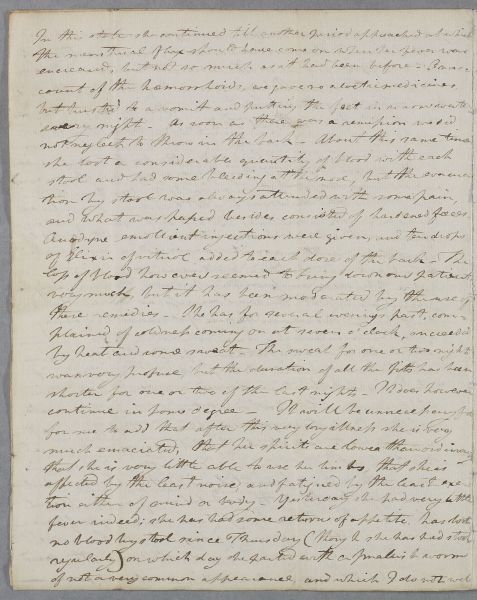 In this state she continued till another period approached at which
the menstrual flux should have come on when her fever was
encreased, but not so much as it had been before - On ac-
count of the hæmorrhoids, we gave no aloetic medicines,
but trusted to a vomit and putting the feet in warm water
every night. As soon as there was a remission we did
not neglect to throw in the bark - About this same time
she lost a considerable quantity of blood with each
stool and had some bleeding at the nose, but the evacua-
tion by stool was always attended with some pain,
and what was passed besides consisted of hardened fæces.
Anodyne emollient injections were given, and ten drops
of Elixir of vitriol added to each dose of the bark - The
loss of blood however seemed to bring down our patient
very much, but it has been moderated by the use of
these remedies - She has for several evenings past, com-
plained of coldness coming on at seven o'clock, succeeded
by heat and some sweat - The sweat for one or two nights
was very profuse, but the duration of all the fits has been
shorter for one or two of the last nights - It does however
continue in some degree - It will be unnecessary
for me to add that after this very long illness she is very
much emaciated, that her spirits are lower than ordinary
that she is very little able to use her limbs, that she is
affected by the least noise, and fatigued by the least exer-
tion either of mind or body - Yesterday she had very little
fever indeed; she has had some returns of appetite, has lost
no blood by stool since Thursday (though she has had stools
regularly) on which day she parted with a small worm
of not a very common appearance, and which I do not well